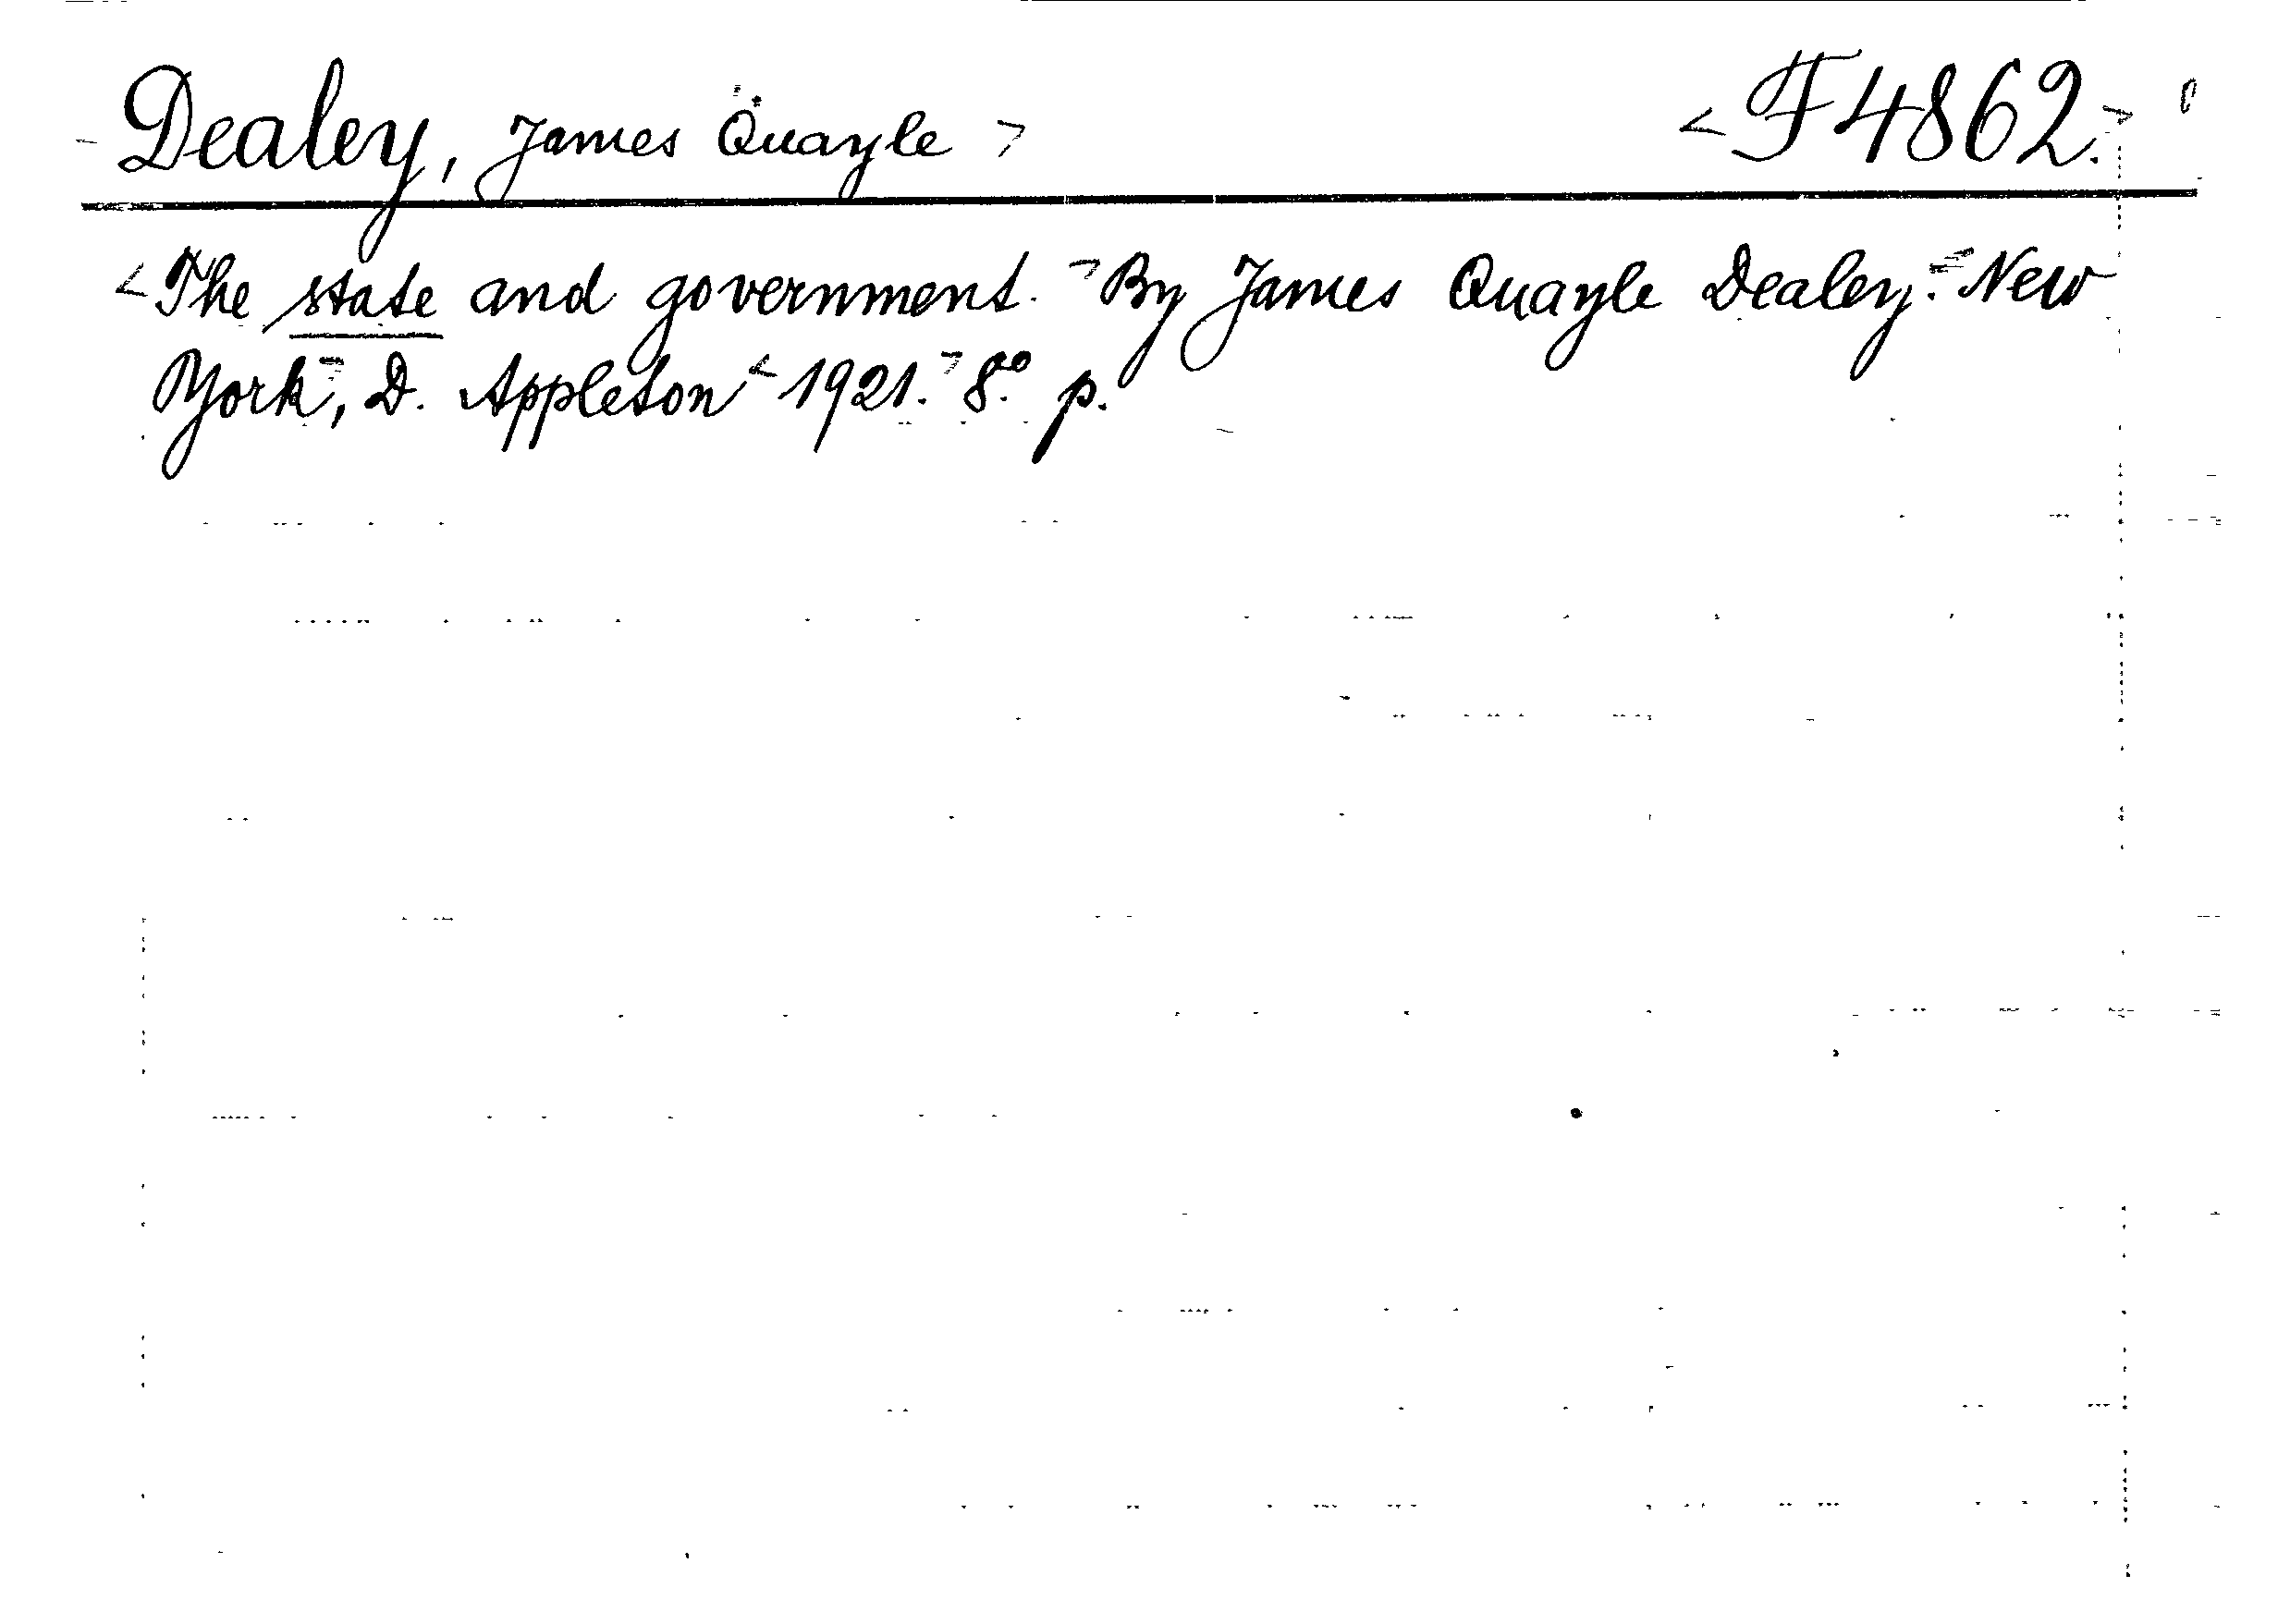 Dealey, James Quayle > < F 4862. >
< The state and government. > By James Quayle Dealey. = New
York, D. Appleton < 1921. > 8.º p.